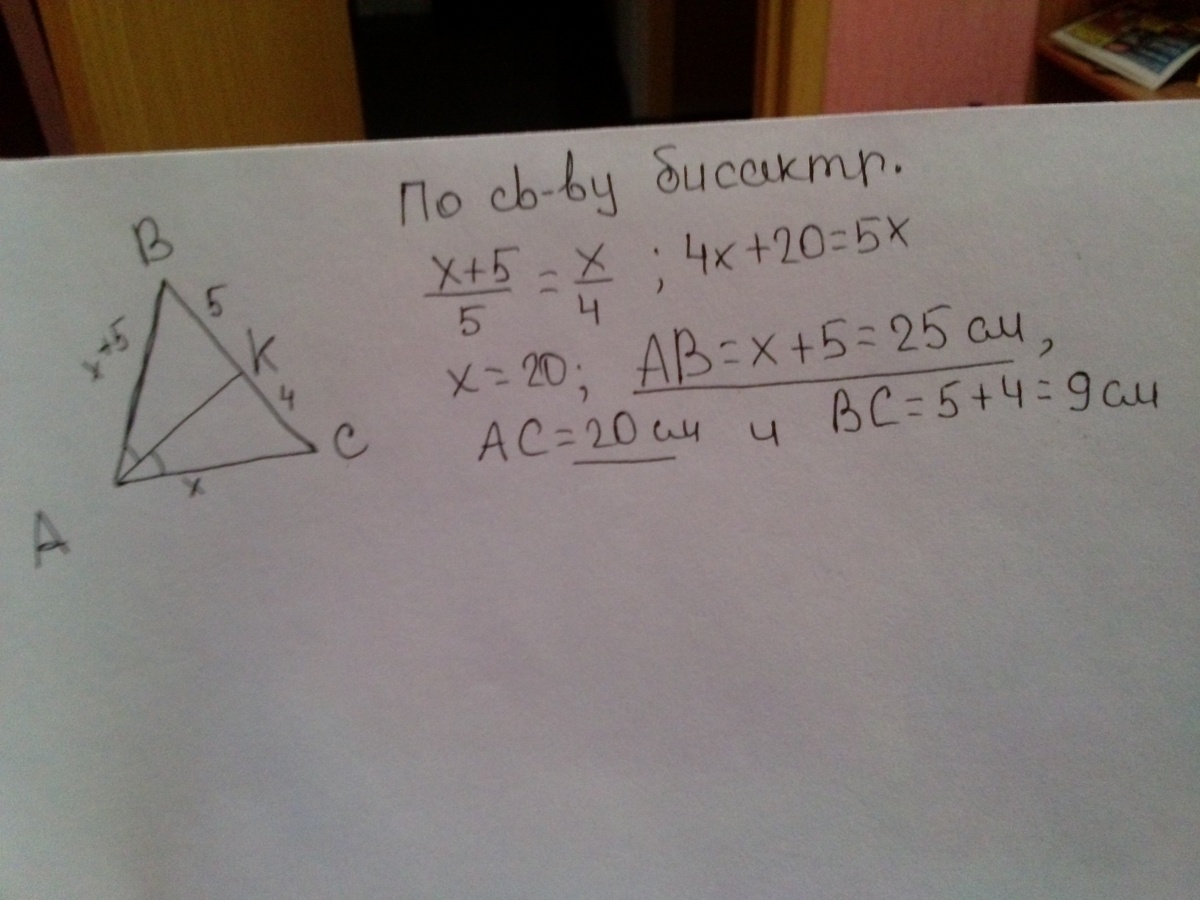 По св-ву бисактр.
x+5/5 = x/4 ; 4x+20=5x
x=20; AB=x+5=25 см,
AC=20 см и BC=5+4=9 см
B
x+5
5
K
4
C
x
A